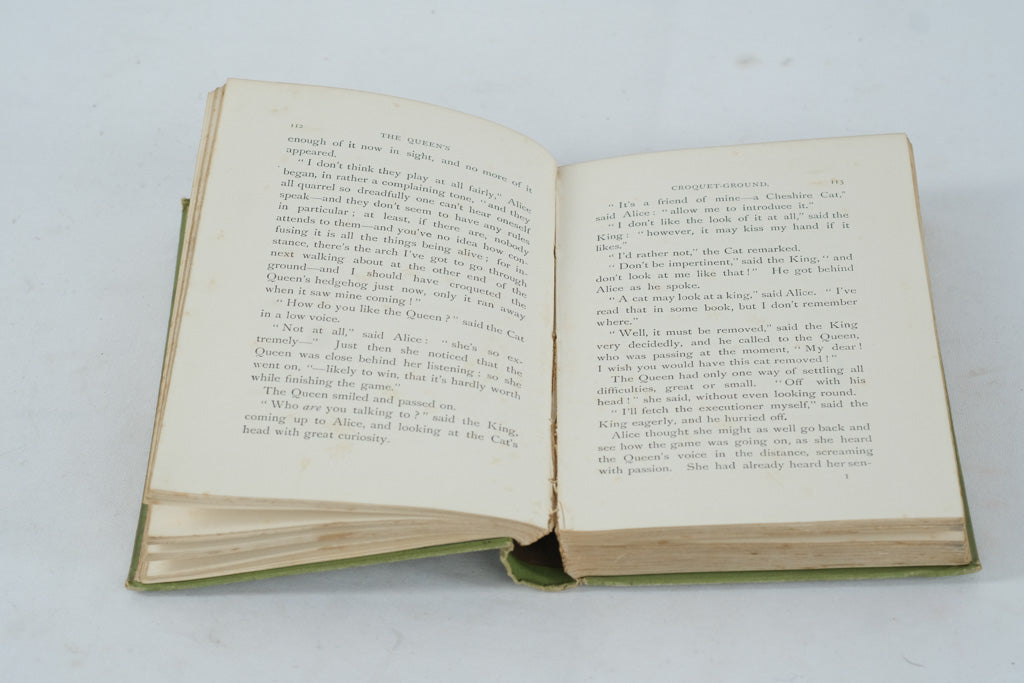 112
THE QUEEN'S
enough of it now in sight, and no more of it
appeared.
"I don't think they play at all fairly," Alice
began, in rather a complaining tone, "and they
all quarrel so dreadfully one can't hear oneself
speak—and they don't seem to have any rules
in particular; at least, if there are, nobody
attends to them—and you've no idea how con-
fusing it is all the things being alive; for in-
stance, there's the arch I've got to go through
next walking about at the other end of the
ground—and I should have croqueted the
Queen's hedgehog just now, only it ran away
when it saw mine coming!"
"How do you like the Queen?" said the Cat
in a low voice.
"Not at all," said Alice: "she's so ex-
tremely—" Just then she noticed that the
Queen was close behind her listening; so she
went on, "—likely to win, that it's hardly worth
while finishing the game."
The Queen smiled and passed on.
"Who are you talking to?" said the King,
coming up to Alice, and looking at the Cat's
head with great curiosity.
CROQUET-GROUND.
113
"It's a friend of mine—a Cheshire Cat,"
said Alice: "allow me to introduce it."
"I don't like the look of it at all," said the
King: "however, it may kiss my hand if it
likes."
"I'd rather not," the Cat remarked.
"Don't be impertinent," said the King, "and
don't look at me like that!" He got behind
Alice as he spoke.
"A cat may look at a king," said Alice. "I've
read that in some book, but I don't remember
where."
"Well, it must be removed," said the King
very decidedly, and he called to the Queen,
who was passing at the moment, "My dear!
I wish you would have this cat removed!"
The Queen had only one way of settling all
difficulties, great or small. "Off with his
head!" she said, without even looking round.
"I'll fetch the executioner myself," said the
King eagerly, and he hurried off.
Alice thought she might as well go back and
see how the game was going on, as she heard
the Queen's voice in the distance, screaming
with passion. She had already heard her sen-
I